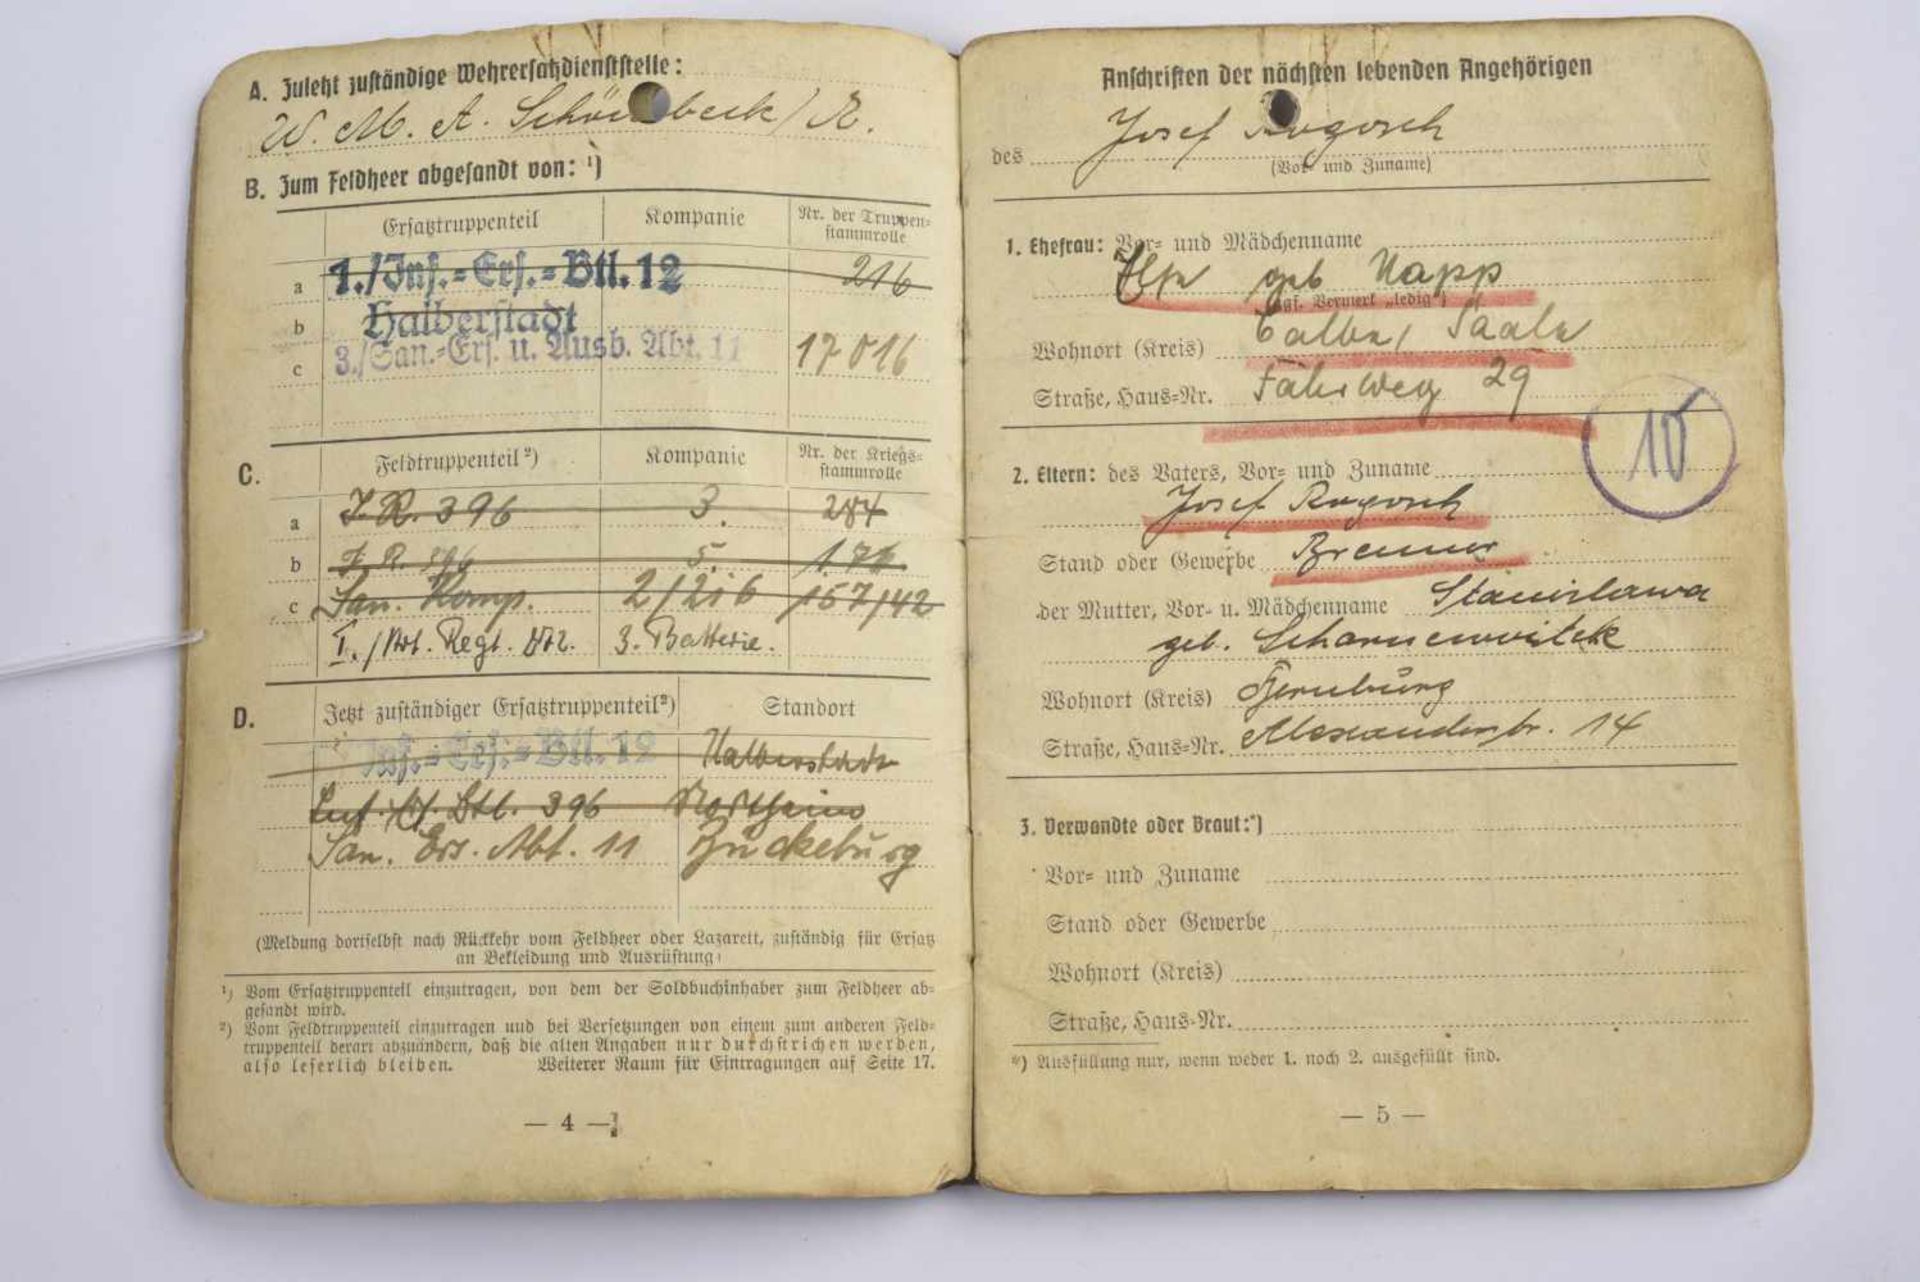 A. Zuletzt zuständige Wehrersatzdienststelle:
W. M. A. Schönebeck / E.
B. Zum Feldheer abgesandt von: ¹)
Ersatztruppenteil Kompanie Nr. der Truppen=
stammrolle
a 1./Inf.=Ers.=Btl. 12 216
b Halberstadt
c 3./San.=Ers. u. Ausb. Abt. 11 17016
C. Feldtruppenteil ²) Kompanie Nr. der Kriegs=
stammrolle
a J. R. 396 3. 284
b J. R. 396 5. 171
c San. Komp. 2/216 157/42
I./Art. Regt. 3. Batterie.
D. Jetzt zuständiger Ersatztruppenteil ²) Standort
Inf.=Ers.=Btl. 12 Halberstadt
Inf. Ers. Btl. 396 Northeim
San. Ers. Abt. 11 Bückeburg
(Meldung dortselbst nach Rückkehr vom Feldheer oder Lazarett, zuständig für Ersatz
an Bekleidung und Ausrüstung)
¹) Vom Ersatztruppenteil einzutragen, von dem der Soldbuchinhaber zum Feldheer ab=
gesandt wird.
²) Vom Feldtruppenteil einzutragen und bei Versetzungen von einem zum anderen Feld=
truppenteil derart abzuändern, daß die alten Angaben nur durchstrichen werden,
also leserlich bleiben. Weiterer Raum für Eintragungen auf Seite 17.
— 4 —
Anschriften der nächsten lebenden Angehörigen
des Josef Rogosch
(Vor= und Zuname)
1. Ehefrau: Vor= und Mädchenname
geb Napp
ggf. Vermerk „ledig")
Wohnort (Kreis) Calbe / Saale
Straße, Haus=Nr. Fährweg 29
10
2. Eltern: des Vaters, Vor= und Zuname
Josef Rogosch
Stand oder Gewerbe Brenner
der Mutter, Vor- u. Mädchenname Stanislawa
geb.
Wohnort (Kreis) Bernburg
Straße, Haus=Nr. Alexanderstr. 14
3. Verwandte oder Braut:*)
Vor= und Zuname
Stand oder Gewerbe
Wohnort (Kreis)
Straße, Haus=Nr.
*) Ausfüllung nur, wenn weder 1. noch 2. ausgefüllt sind.
— 5 —